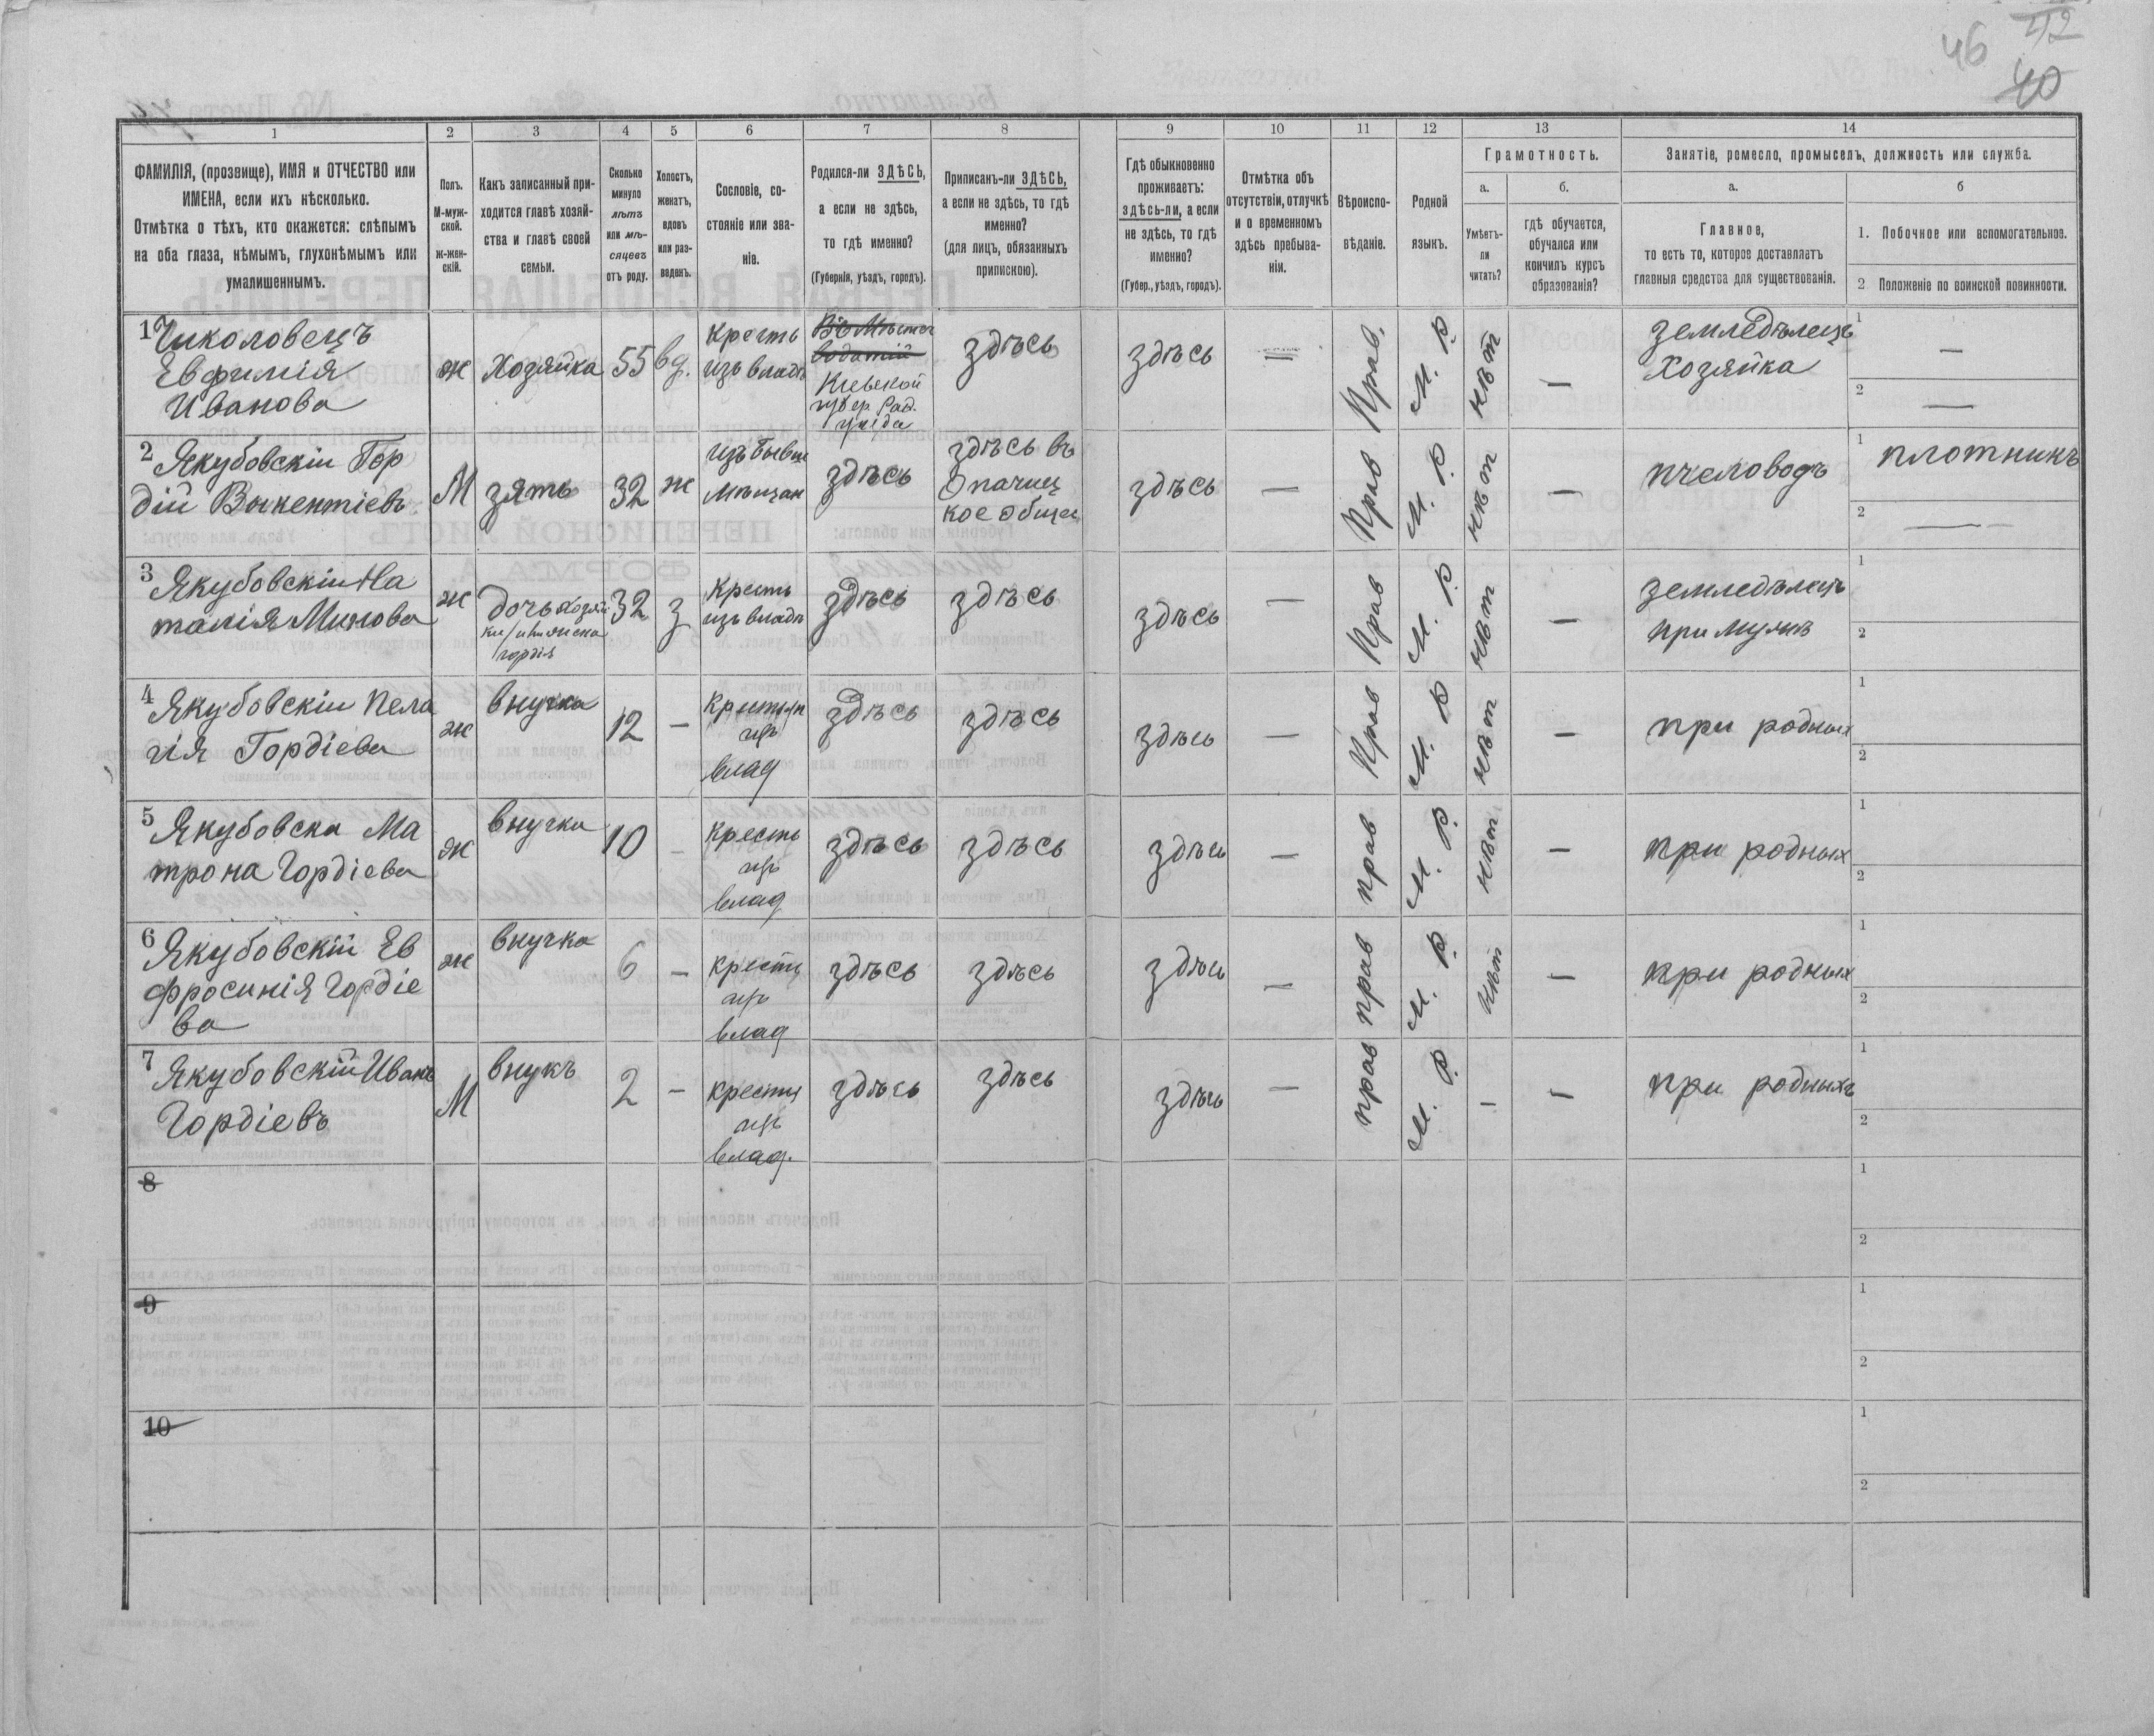 46 42
40
1 2 3 4 5 6 7 8 9 10 11 12 13 14
ФАМИЛІЯ, (прозвище), ИМЯ и ОТЧЕСТВО или
ИМЕНА, если ихъ нѣсколько.
Отмѣтка о тѣхъ, кто окажется: слѣпымъ
на оба глаза, нѣмымъ, глухонѣмымъ или
умалишеннымъ.
Полъ.
М-муж-
ской.
ж-жен-
скій.
Какъ записанный при-
ходится главѣ хозяй-
ства и главѣ своей
семьи.
Сколько
минуло
лѣтъ
или мѣ-
сяцевъ
отъ роду.
Холостъ,
женатъ,
вдовъ
или раз-
веденъ.
Сословіе, со-
стояніе или зва-
ніе.
Родился-ли ЗДѢСЬ,
а если не здѣсь,
то гдѣ именно?
(Губернія, уѣздъ, городъ).
Приписанъ-ли ЗДѢСЬ,
а если не здѣсь, то гдѣ
именно?
(для лицъ, обязанныхъ
припискою).
Гдѣ обыкновенно
проживаетъ:
здѣсь-ли, а если
не здѣсь, то гдѣ
именно?
(Губер., уѣздъ, городъ).
Отмѣтка объ
отсутствіи, отлучкѣ
и о временномъ
здѣсь пребыва-
ніи.
Вѣроиспо-
вѣданіе.
Родной
языкъ.
Грамотность.
а.
Умѣетъ-
ли
читать?
б.
гдѣ обучается,
обучался или
кончилъ курсъ
образованія?
Занятіе, ремесло, промыселъ, должность или служба.
а.
Главное,
то есть то, которое доставляетъ
главныя средства для существованія.
б
1. Побочное или вспомогательное.
2 Положеніе по воинской повинности.
1 Чиколовецъ
Евфимія
Иванова
ж
Хозяйка
55
вд.
крестъ
изъ владѣ
Кіевской
губер Рад.
уѣзда
здѣсь
здѣсь
—
Прав.
М. Р.
нѣт
—
земледѣлецъ
Хозяйка
1 —
2 —
2 Якубовскіи Гор
дій Викентіевъ
М
зять
32
ж
изъ бывш
мѣщан
здѣсь
здѣсь въ
Опачиц
кое общес
здѣсь
—
Прав
М. Р
нѣт
—
пчеловодъ
1 плотникъ
2 —
3 Якубовскіи На
талія Минова
ж
дочь хозяй
ки / и жена
гордія
32
з
Кресть
изъ владѣ
здѣсь
здѣсь
здѣсь
—
Прав
М. Р.
нѣт
—
земледѣлец
при мужѣ
1
2
4 Якубовскіи Пела
гія Гордіева
ж
внучка
12
—
Крестян
изъ
влад
здѣсь
здѣсь
здѣсь
—
Прав
М. Р
нѣт
—
при родных
1
2
5 Якубовска Ма
трона Гордіева
ж
внучка
10
-
Кресть
изъ
влад
здѣсь
здѣсь
здѣсь
—
прав
М. Р.
нѣт
—
при родных
1
2
6 Якубовскіи Ев
фросинія Гордіе
ва
ж
внучка
6
—
крестъ
изъ
влад
здѣсь
здѣсь
здѣсь
—
прав
М. Р.
нѣт
—
при родных
1
2
7 Якубовскій Иванъ
Гордіевъ
М
внукъ
2
—
крестя
изъ
влад.
здѣсь
здѣсь
здѣсь
—
прав
М. Р.
—
—
при родныхъ
1
2
8
1
2
9
1
2
10
1
2